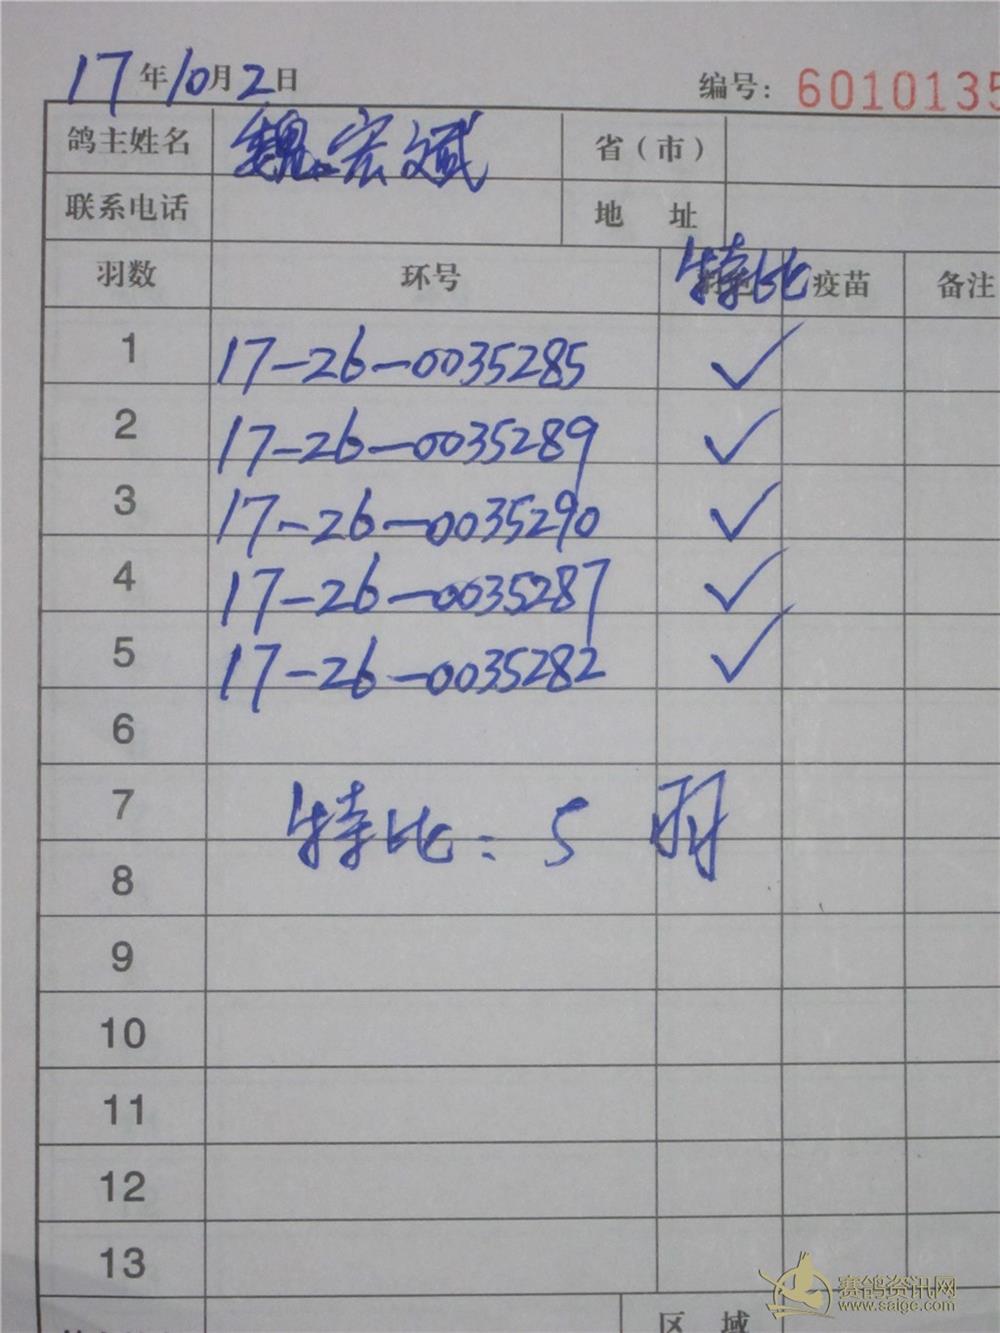 17年10月2日 编号: 6010135
鸽主姓名 魏宏斌 省(市)
联系电话 地 址
羽数 环号 特比 疫苗 备注
1 17-26-0035285 ✓
2 17-26-0035289 ✓
3 17-26-0035290 ✓
4 17-26-0035287 ✓
5 17-26-0035282 ✓
6
7
特比: 5 羽
8
9
10
11
12
13
区 域
赛鸽资讯网
www.saigc.com